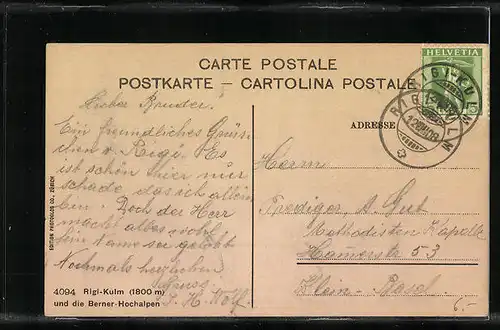 CARTE POSTALE
POSTKARTE — CARTOLINA POSTALE
HELVETIA
RIGI-KULM
RIGI-KULM
Lieber Bruder!
ADRESSE
Ein freundliches Grüss-
chen v. Rigi. Es
ist schön hier nur
schade das ich allein
bin. Doch der Herr
macht alles wohl
sein Name sei gelobt
Nochmals herzlichen
Gruss
J. H. Wolf.
Herrn
Prediger A. Gut
Methodisten Kapelle
Hamerstr 53
Klein-Basel.
EDITION PHOTOGLOB CO., ZÜRICH
4094 Rigi-Kulm (1800 m)
und die Berner-Hochalpen
6.-